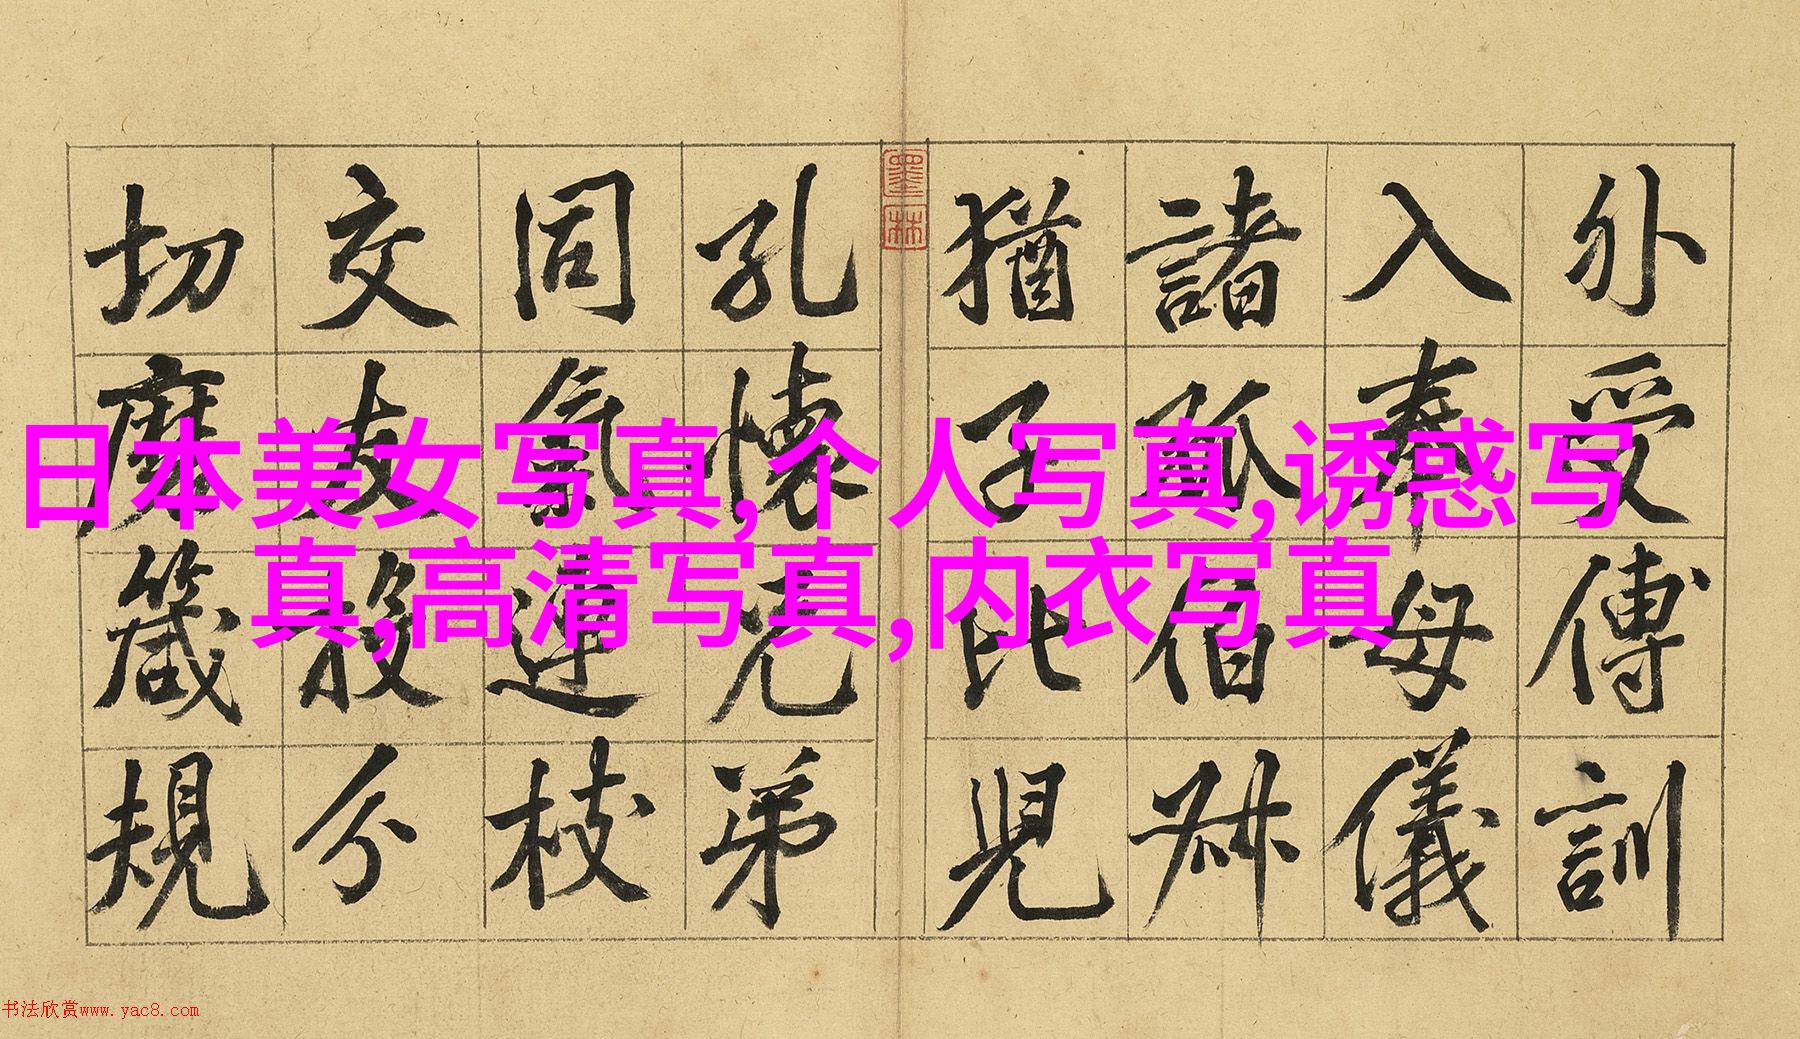 外受傅訓
入奉母儀
諸孤伯叔
猶子比兒
孔懷兄弟
同氣連枝
交友投分
切磨箴規
墨林
日本美女写真,个人写真,诱惑写
真,高清写真,内衣写真
书法欣赏www.yac8.com